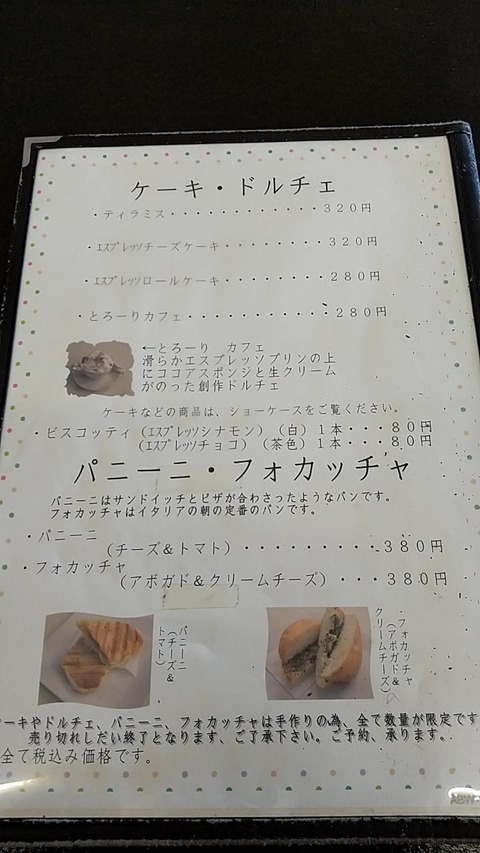 ケーキ・ドルチェ
・ティラミス・・・・・・・・・・・・320円
・エスプレッソチーズケーキ・・・・・・・・320円
・エスプレッソロールケーキ・・・・・・・・280円
・とろーりカフェ・・・・・・・・・・・280円
←とろーり カフェ
滑らかエスプレッソプリンの上
にココアスポンジと生クリーム
がのった創作ドルチェ
ケーキなどの商品は、ショーケースをご覧ください。
・ビスコッティ（エスプレッソシナモン）（白）1本・・・80円
（エスプレッソチョコ）（茶色）1本・・・80円
パニーニ・フォカッチャ
パニーニはサンドイッチとピザが合わさったようなパンです。
フォカッチャはイタリアの朝の定番のパンです。
・パニーニ
（チーズ＆トマト）・・・・・・・・・380円
・フォカッチャ
（アボガド＆クリームチーズ）・・・380円
パニーニ
（チーズ＆
トマト）
フォカッチャ
（アボガド＆
クリームチーズ）
ーキやドルチェ、パニーニ、フォカッチャは手作りの為、全て数量が限定です
売り切れしだい終了となります、ご了承下さい。ご予約、承ります。
全て税込み価格です。